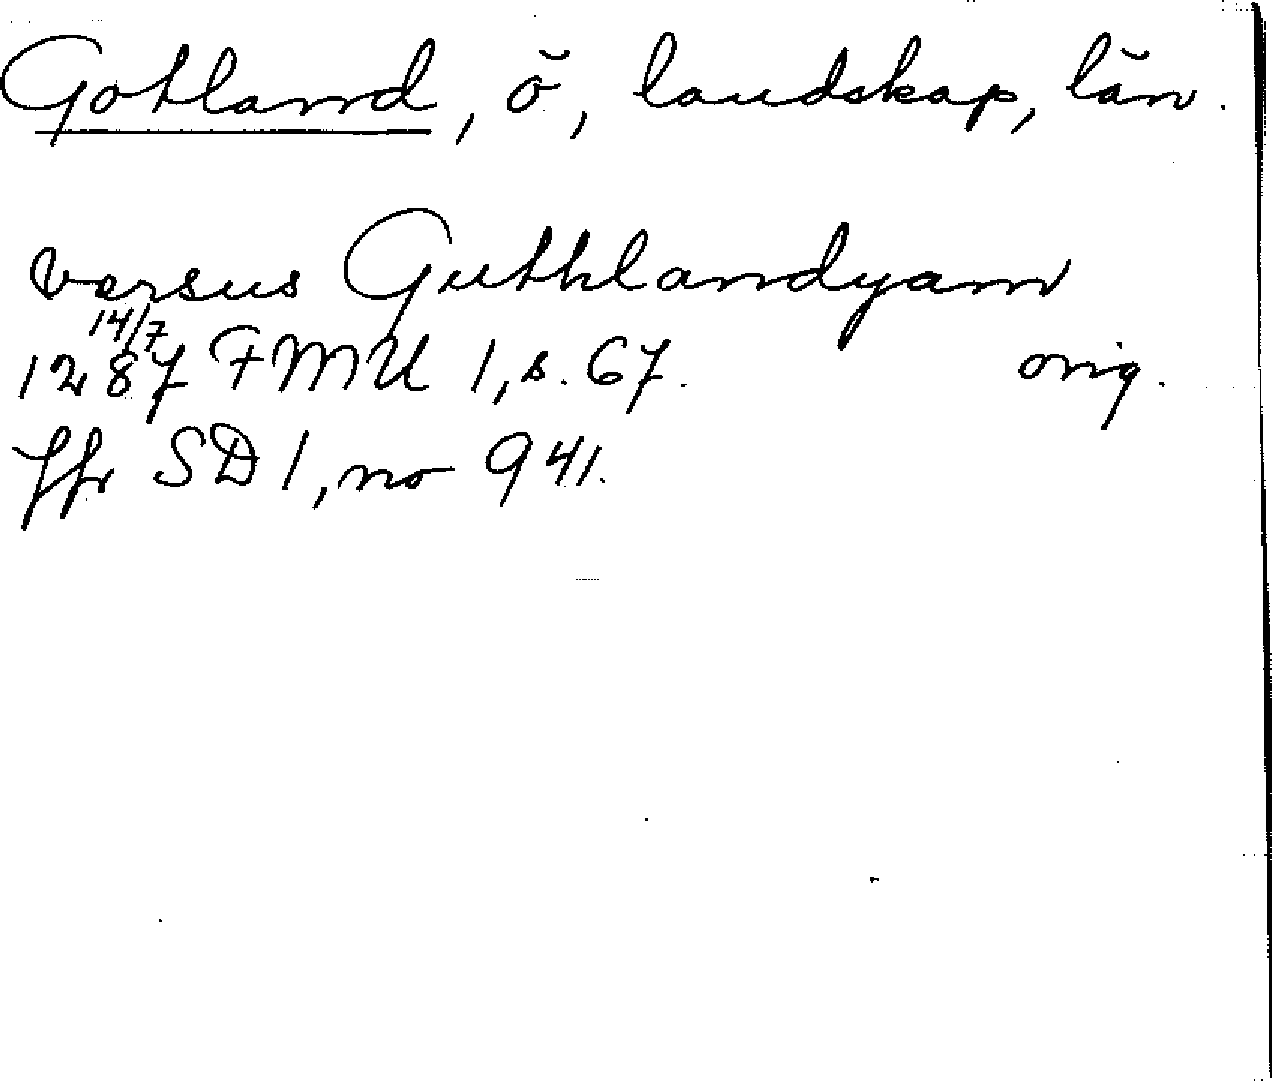 Gotland, ö, landskap, län.
versus Guthlandyam
14/7
1287 FMU 1, s. 67. orig.
Jfr SD 1, no 941.